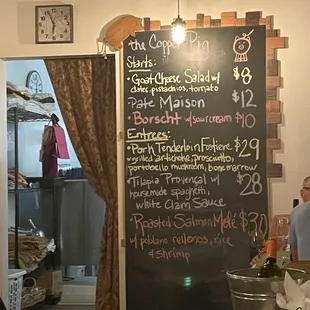 the Copper Pig
Starts:
Goat Cheese Salad w/ $8
dates, pistachios, tomato
Pate Maison $12
Borscht w/ sour cream $10
Entrees:
Pork Tenderloin Forestiere $29
w/ grilled artichoke, prosciutto,
portobello mushroom, bone marrow
Tilapia Provençal w/ 28
housemade spaghetti,
white Clam Sauce
Roasted Salmon Molé $30
w/ poblano rellenos, rice
& shrimp